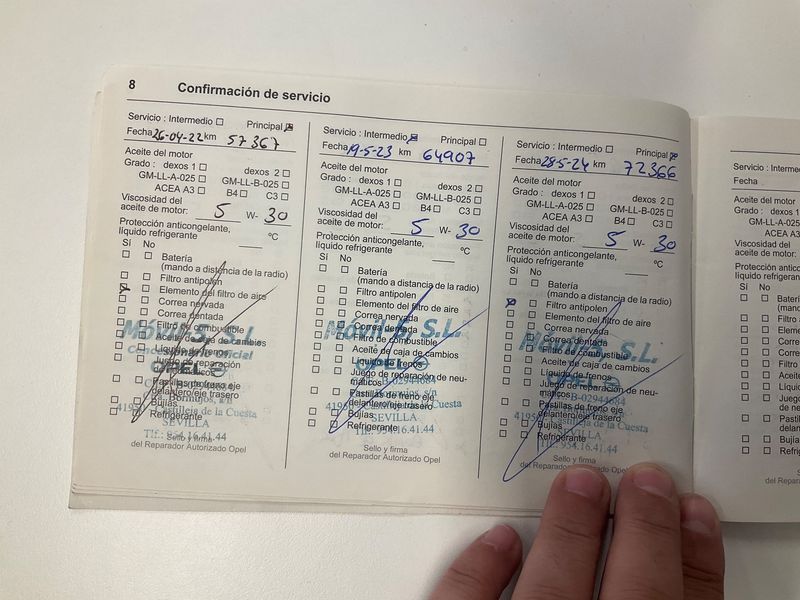 8 Confirmación de servicio
Servicio : Intermedio Principal
Fecha 26-04-22 km 57367
Aceite del motor
Grado : dexos 1 dexos 2
GM-LL-A-025 GM-LL-B-025
ACEA A3 B4 C3
Viscosidad del
aceite de motor: 5 W- 30
Protección anticongelante,
líquido refrigerante °C
Sí No
Batería
(mando a distancia de la radio)
Filtro antipolen
Elemento del filtro de aire
Correa nervada
Correa dentada
Filtro de combustible
Aceite de caja de cambios
Líquido de frenos
Juego de reparación
Pastillas de freno eje
delantero/eje trasero
Bujías
Refrigerante
Móvil S, S.L.
OPEL
Castilleja de la Cuesta
SEVILLA
Tlf.: 954.16.41.44
Sello y firma
del Reparador Autorizado Opel
Servicio : Intermedio Principal
Fecha 19-5-23 km 64907
Aceite del motor
Grado : dexos 1 dexos 2
GM-LL-A-025 GM-LL-B-025
ACEA A3 B4 C3
Viscosidad del
aceite de motor: 5 W- 30
Protección anticongelante,
líquido refrigerante °C
Sí No
Batería
(mando a distancia de la radio)
Filtro antipolen
Elemento del filtro de aire
Correa nervada
Correa dentada
Filtro de combustible
Aceite de caja de cambios
Líquido de frenos
Juego de reparación de neu-
máticos
Pastillas de freno eje
delantero/eje trasero
Bujías
Refrigerante
Móvil S, S.L.
OPEL
B-02944684
Castilleja de la Cuesta
SEVILLA
Tlf.: 954.16.41.44
Sello y firma
del Reparador Autorizado Opel
Servicio : Intermedio Principal
Fecha 28-5-24 km 72366
Aceite del motor
Grado : dexos 1 dexos 2
GM-LL-A-025 GM-LL-B-025
ACEA A3 B4 C3
Viscosidad del
aceite de motor: 5 W- 30
Protección anticongelante,
líquido refrigerante °C
Sí No
Batería
(mando a distancia de la radio)
Filtro antipolen
Elemento del filtro de aire
Correa nervada
Correa dentada
Filtro de combustible
Aceite de caja de cambios
Líquido de frenos
Juego de reparación de neu-
máticos
Pastillas de freno eje
delantero/eje trasero
Bujías
Refrigerante
Móvil S, S.L.
OPEL
B-02944684
Castilleja de la Cuesta
SEVILLA
Tlf.: 954.16.41.44
Sello y firma
del Reparador Autorizado Opel
Servicio : Inter
Fecha
Aceite del motor
Grado : dexos 1
GM-LL-A-025
ACEA A3
Viscosidad del
aceite de motor:
Sí No